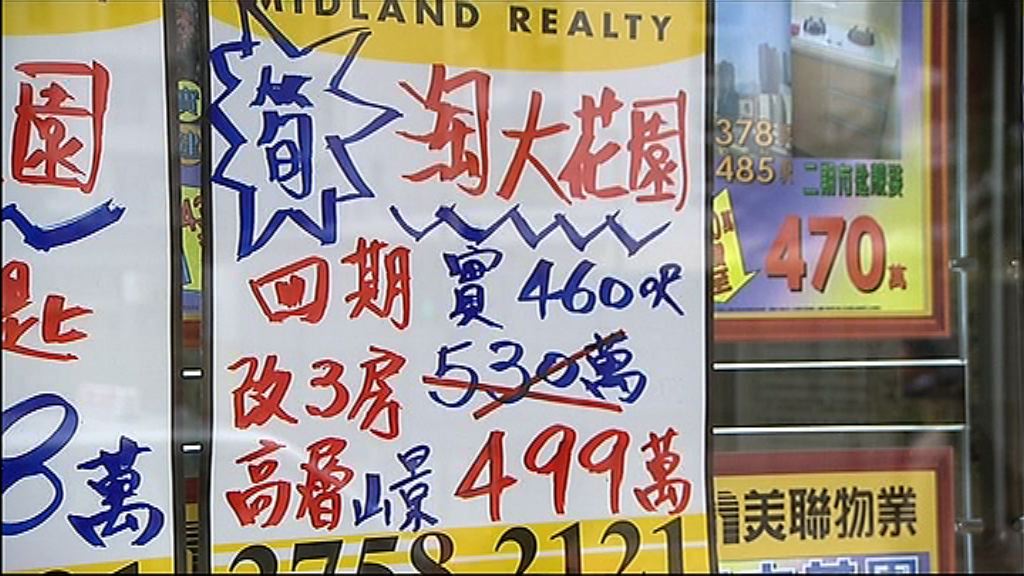 MIDLAND REALTY
園
筍
淘大花園
四期 實460呎
改3房 530萬
高層山景 499萬
2758 2121
匙
8萬
378
485
470萬
美聯物業